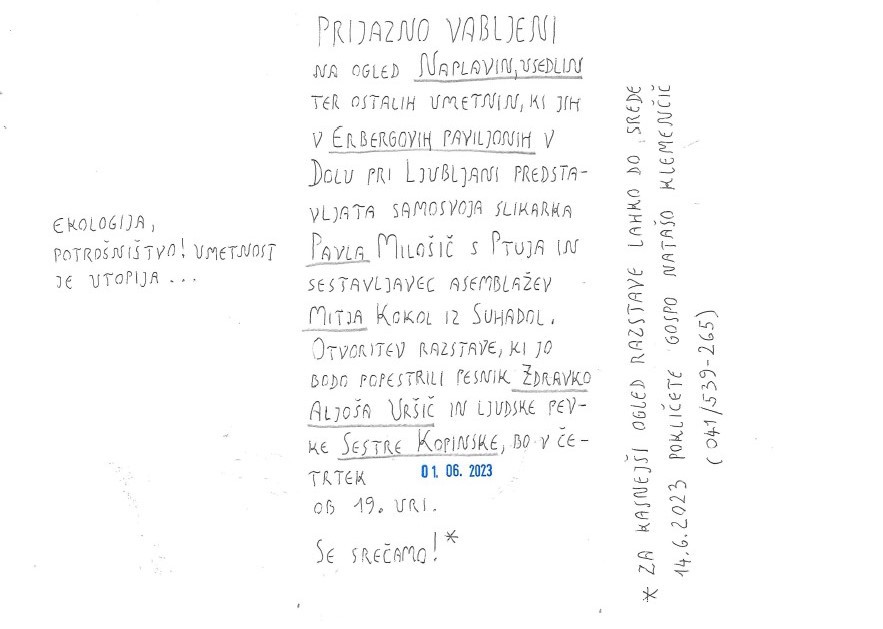 EKOLOGIJA,
POTROŠNIŠTVO! UMETNOST
JE UTOPIJA...
PRIJAZNO VABLJENI
NA OGLED NAPLAVIN, USEDLIN
TER OSTALIH UMETNIN, KI JIH
V ERBERGOVIH PAVILJONIH V
DOLU PRI LJUBLJANI PREDSTA-
VLJATA SAMOSVOJA SLIKARKA
PAVLA MILOŠIČ S PTUJA IN
SESTAVLJAVEC ASEMBLAŽEV
MITJA KOKOL IZ SUHADOL.
OTVORITEV RAZSTAVE, KI JO
BODO POPESTRILI PESNIK ZDRAVKO
ALJOŠA VRŠIČ IN LJUDSKE PEV-
KE SESTRE KOPINSKE, BO V ČE-
TRTEK 01. 06. 2023
OB 19. URI.
SE SREČAMO!*
* ZA KASNEJŠI OGLED RAZSTAVE LAHKO DO SREDE
14.6.2023 POKLIČETE GOSPO NATAŠO KLEMENČIČ
(041/539-265)